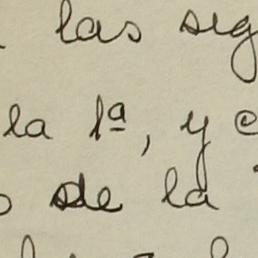 las sig
la 1ª, y e
de la